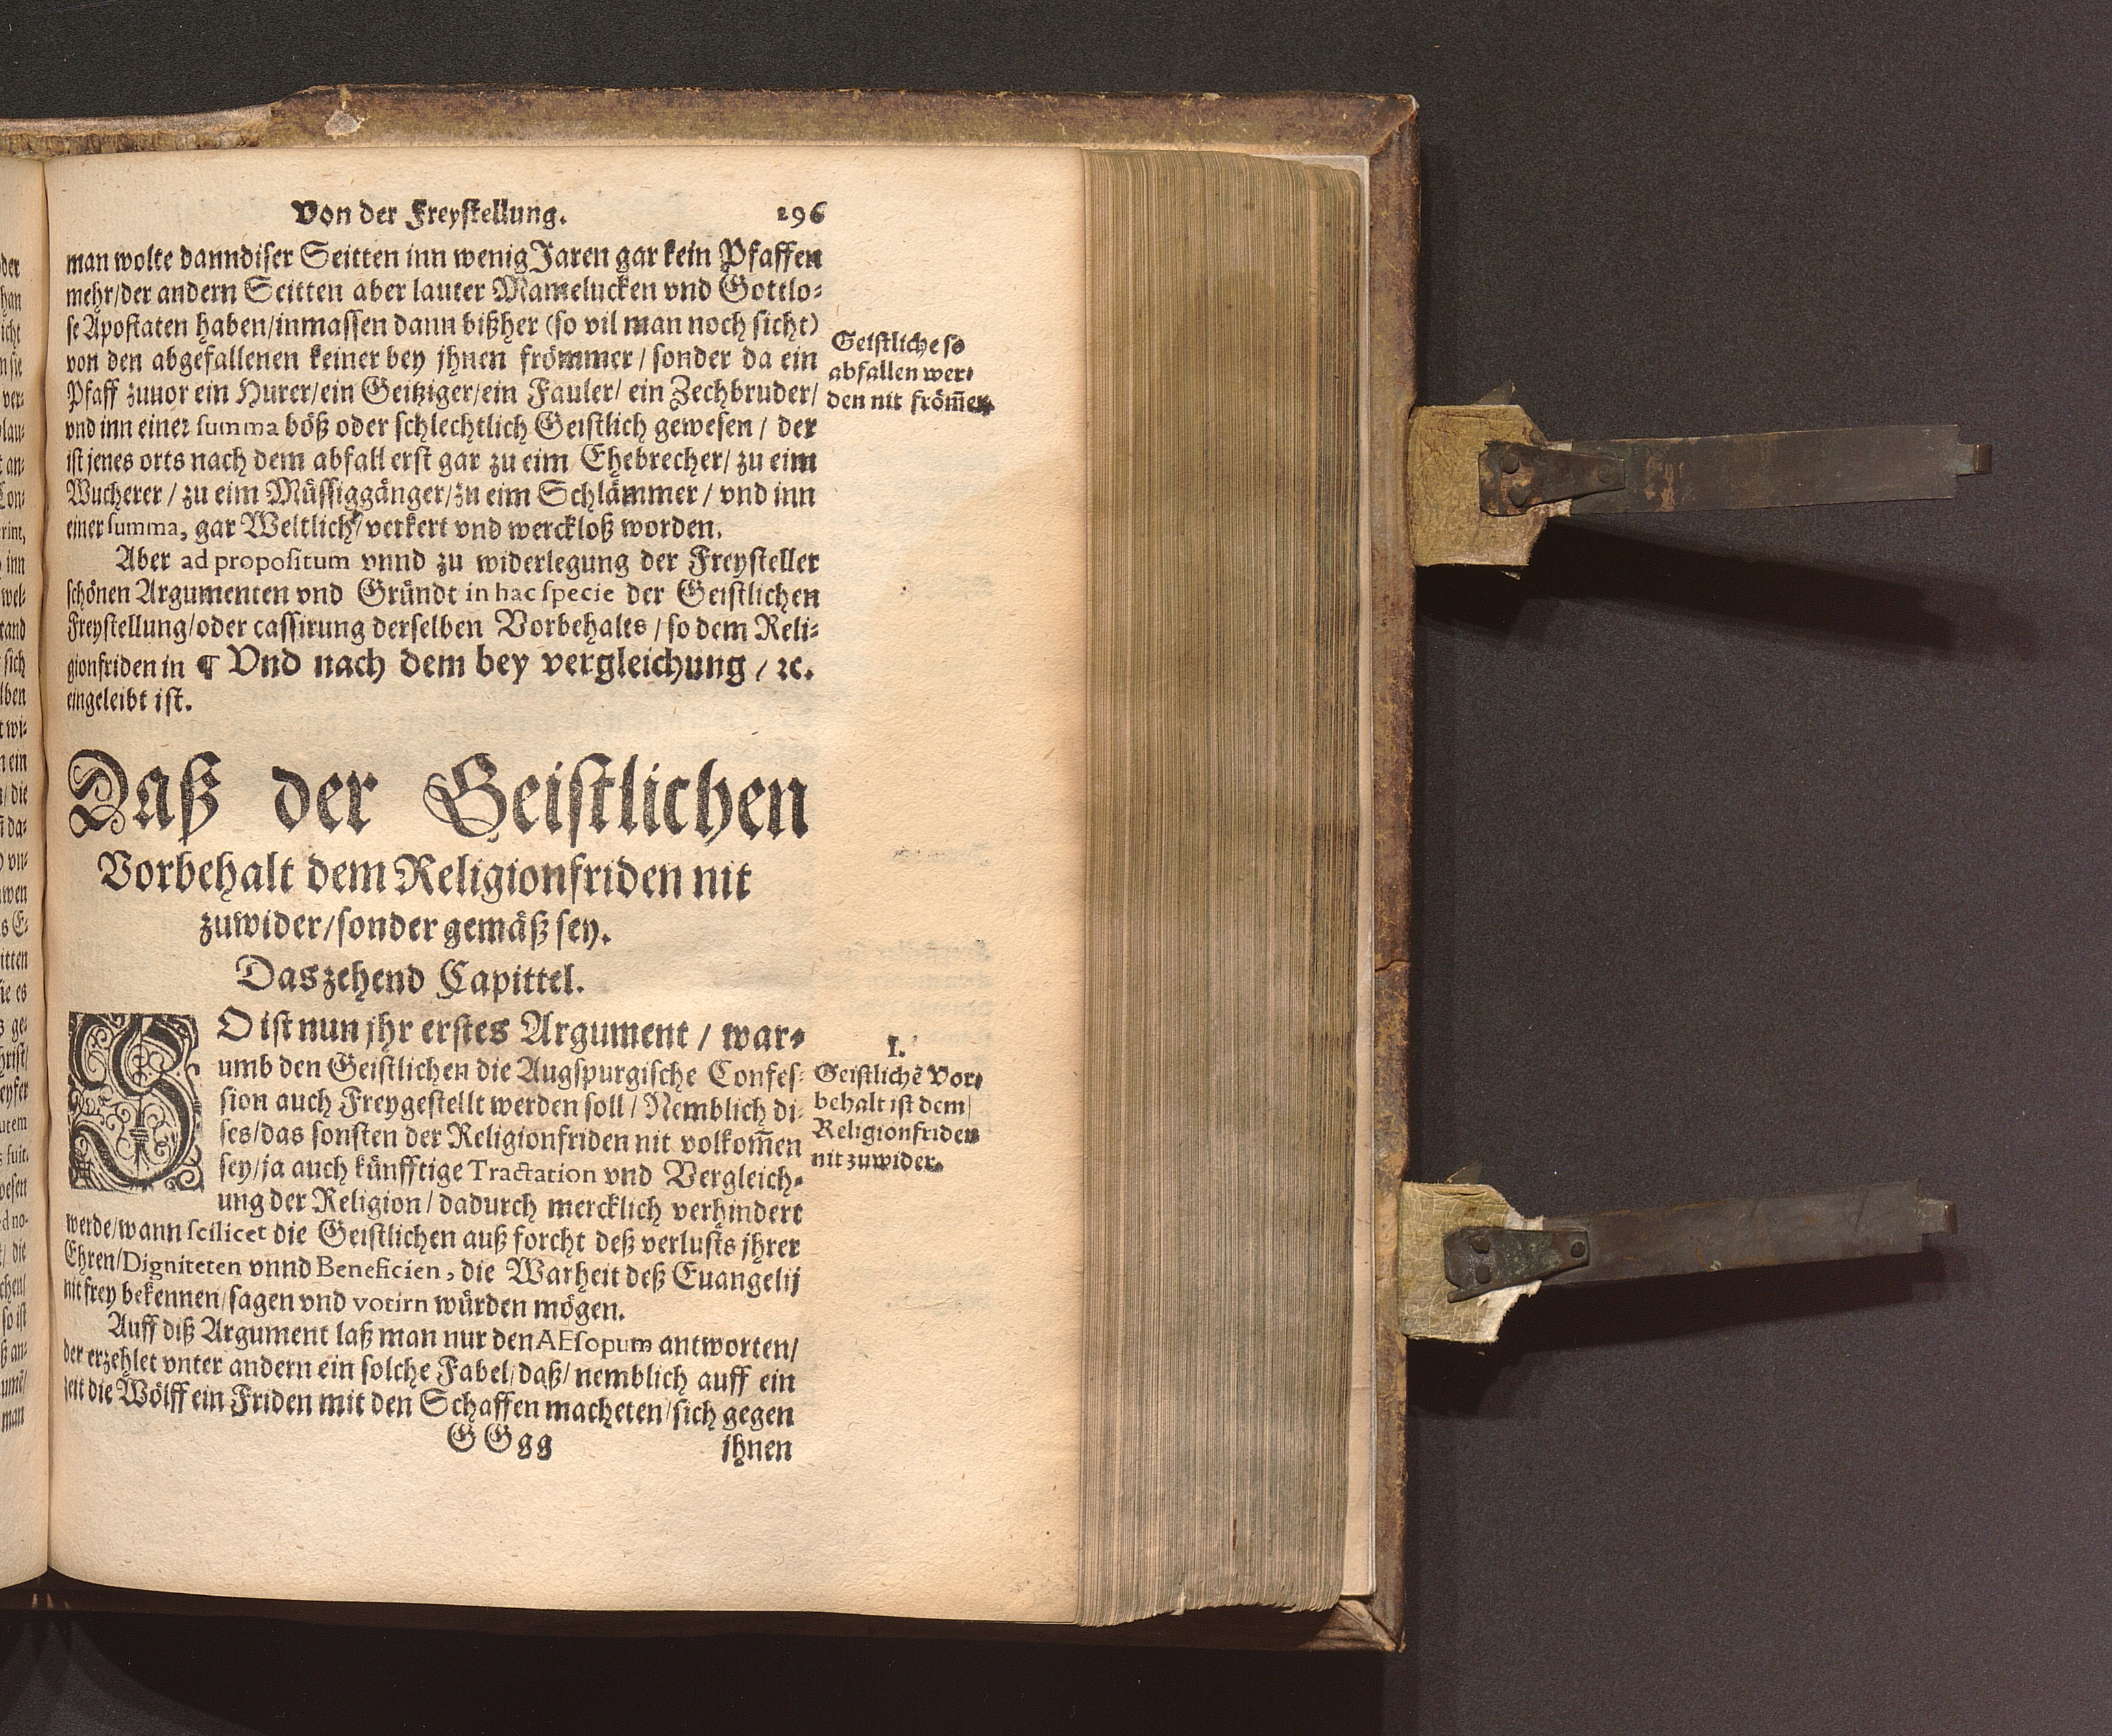 Von der Freystellung. 296
man wolte danndiser Seitten inn wenig Jaren gar kein Pfaffen
mehr/der andern Seitten aber lauter Mamelucken vnd Gottlo-
se Apostaten haben/inmassen dann bißher (so vil man noch sicht)
von den abgefallenen keiner bey jhnen frömmer/sonder da ein
Pfaff zuuor ein Hurer/ein Geitziger/ein Fauler/ein Zechbruder/
vnd inn einer summa böß oder schlechtlich Geistlich gewesen/der
ist jenes orts nach dem abfall erst gar zu eim Ehebrecher/zu eim
Wucherer/zu eim Müssiggänger/zu eim Schlämmer/vnd inn
einer summa, gar Weltlich/verkert vnd werckloß worden.
Geistliche so
abfallen wer-
den nit frömm̃er.
Aber ad propositum vnnd zu widerlegung der Freysteller
schönen Argumenten vnd Gründt in hac specie der Geistlichen
Freystellung/oder cassirung derselben Vorbehalts/so dem Reli-
gionfriden in ¶ Vnd nach dem bey vergleichung/ꝛc.
eingeleibt ist.
Daß der Geistlichen
Vorbehalt dem Religionfriden nit
zuwider/sonder gemäß sey.
Das zehend Capittel.
SO ist nun jhr erstes Argument/war-
umb den Geistlichen die Augspurgische Confes-
sion auch Freygestellt werden soll/Nemblich di-
ses/das sonsten der Religionfriden nit volkom̃en
sey/ja auch künfftige Tractation vnd Vergleich-
ung der Religion/dadurch mercklich verhindert
werde/wann scilicet die Geistlichen auß forcht deß verlusts jhrer
Ehren/Digniteten vnnd Beneficien, die Warheit deß Euangelij
nit frey bekennen/sagen vnd votirn würden mögen.
I.
Geistlichẽ Vor-
behalt ist dem
Religionfriden
nit zuwider.
Auff diß Argument laß man nur den AEsopum antworten/
der erzehlet vnter andern ein solche Fabel/daß/nemblich auff ein
zeit die Wölff ein Friden mit den Schaffen macheten/sich gegen
GGgg jhnen